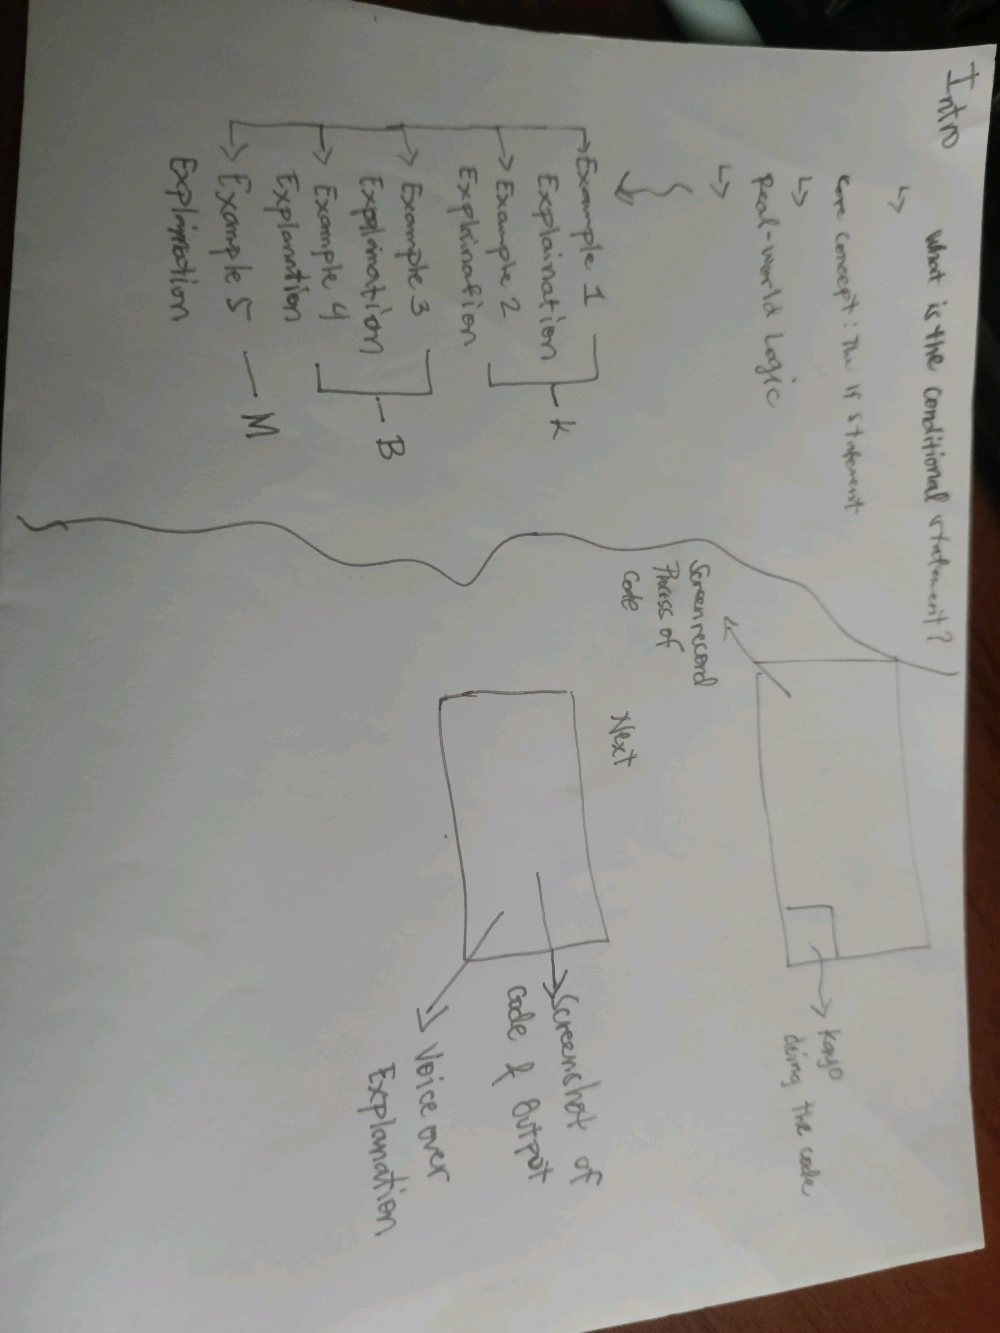 Intro
↳ What is the conditional statement?
↳ core concept: The if statement
↳ Real-world Logic
↳
Example 1
Explaination
K
Example 2
Explaination
Example 3
Explaination
B
Example 4
Explanation
Example 5
M
Explaination
Kayo
doing the code
Screenrecord
Process of
code
Next
Screenshot of
code & Output
Voice over
Explanation